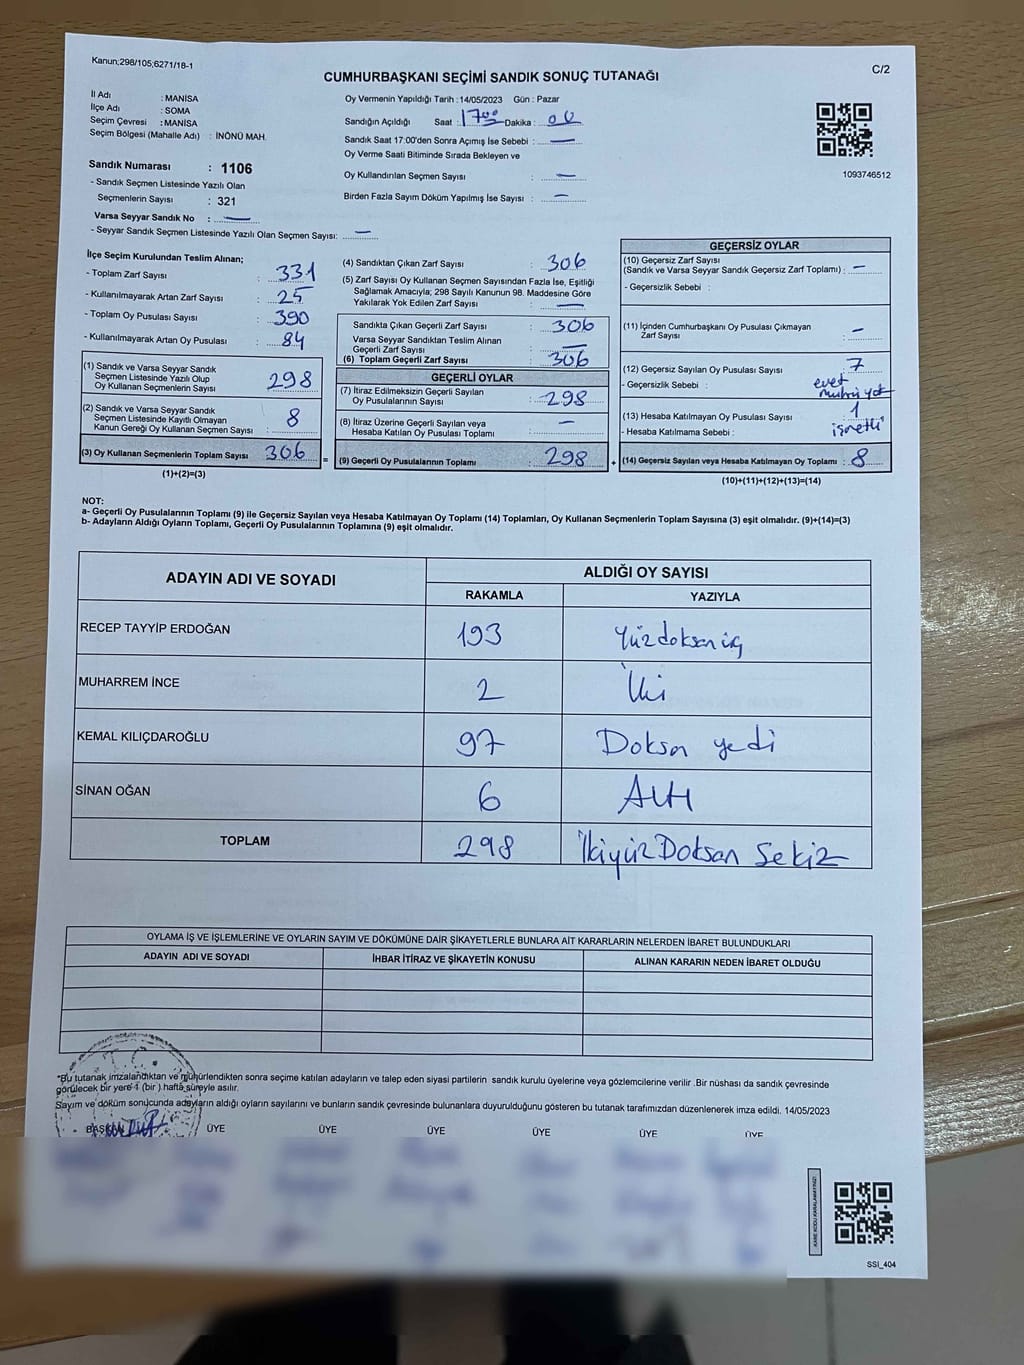 Kanun;298/105;6271/18-1
C/2
CUMHURBAŞKANI SEÇİMİ SANDIK SONUÇ TUTANAĞI
İl Adı : MANİSA
İlçe Adı : SOMA
Seçim Çevresi : MANİSA
Seçim Bölgesi (Mahalle Adı) : İNÖNÜ MAH.
Sandık Numarası : 1106
- Sandık Seçmen Listesinde Yazılı Olan
Seçmenlerin Sayısı : 321
Varsa Seyyar Sandık No : —
- Seyyar Sandık Seçmen Listesinde Yazılı Olan Seçmen Sayısı: —
Oy Vermenin Yapıldığı Tarih : 14/05/2023 Gün : Pazar
Sandığın Açıldığı Saat : 17⁰⁰ Dakika : 00
Sandık Saat 17:00'den Sonra Açımış İse Sebebi : —
Oy Verme Saati Bitiminde Sırada Bekleyen ve
Oy Kullandırılan Seçmen Sayısı : —
Birden Fazla Sayım Döküm Yapılmış İse Sayısı : —
1093746512
İlçe Seçim Kurulundan Teslim Alınan;
- Toplam Zarf Sayısı : 331
- Kullanılmayarak Artan Zarf Sayısı : 25
- Toplam Oy Pusulası Sayısı : 390
- Kullanılmayarak Artan Oy Pusulası : 84
(1) Sandık ve Varsa Seyyar Sandık
Seçmen Listesinde Yazılı Olup
Oy Kullanan Seçmenlerin Sayısı : 298
(2) Sandık ve Varsa Seyyar Sandık
Seçmen Listesinde Kayıtlı Olmayan
Kanun Gereği Oy Kullanan Seçmen Sayısı : 8
(3) Oy Kullanan Seçmenlerin Toplam Sayısı 306
(1)+(2)=(3)
(4) Sandıktan Çıkan Zarf Sayısı : 306
(5) Zarf Sayısı Oy Kullanan Seçmen Sayısından Fazla İse, Eşitliği
Sağlamak Amacıyla; 298 Sayılı Kanunun 98. Maddesine Göre
Yakılarak Yok Edilen Zarf Sayısı : —
Sandıkta Çıkan Geçerli Zarf Sayısı : 306
Varsa Seyyar Sandıktan Teslim Alınan
Geçerli Zarf Sayısı : —
(6) Toplam Geçerli Zarf Sayısı : 306
GEÇERLİ OYLAR
(7) İtiraz Edilmeksizin Geçerli Sayılan
Oy Pusulalarının Sayısı : 298
(8) İtiraz Üzerine Geçerli Sayılan veya
Hesaba Katılan Oy Pusulası Toplamı : —
= (9) Geçerli Oy Pusulalarının Toplamı : 298 +
GEÇERSİZ OYLAR
(10) Geçersiz Zarf Sayısı
(Sandık ve Varsa Seyyar Sandık Geçersiz Zarf Toplamı) : —
- Geçersizlik Sebebi :
(11) İçinden Cumhurbaşkanı Oy Pusulası Çıkmayan
Zarf Sayısı : —
(12) Geçersiz Sayılan Oy Pusulası Sayısı : 7
- Geçersizlik Sebebi : evet
mührü yok
(13) Hesaba Katılmayan Oy Pusulası Sayısı : 1
- Hesaba Katılmama Sebebi : işretli
(14) Geçersiz Sayılan veya Hesaba Katılmayan Oy Toplamı : 8
(10)+(11)+(12)+(13)=(14)
NOT:
a- Geçerli Oy Pusulalarının Toplamı (9) ile Geçersiz Sayılan veya Hesaba Katılmayan Oy Toplamı (14) Toplamları, Oy Kullanan Seçmenlerin Toplam Sayısına (3) eşit olmalıdır. (9)+(14)=(3)
b- Adayların Aldığı Oyların Toplamı, Geçerli Oy Pusulalarının Toplamına (9) eşit olmalıdır.
ADAYIN ADI VE SOYADI ALDIĞI OY SAYISI
RAKAMLA YAZIYLA
RECEP TAYYİP ERDOĞAN 193 Yüzdoksanüç
MUHARREM İNCE 2 İki
KEMAL KILIÇDAROĞLU 97 Doksan yedi
SİNAN OĞAN 6 Altı
TOPLAM 298 İkiyüz Doksan Sekiz
OYLAMA İŞ VE İŞLEMLERİNE VE OYLARIN SAYIM VE DÖKÜMÜNE DAİR ŞİKAYETLERLE BUNLARA AİT KARARLARIN NELERDEN İBARET BULUNDUKLARI
ADAYIN ADI VE SOYADI İHBAR İTİRAZ VE ŞİKAYETİN KONUSU ALINAN KARARIN NEDEN İBARET OLDUĞU
*Bu tutanak imzalandıktan ve mühürlendikten sonra seçime katılan adayların ve talep eden siyasi partilerin sandık kurulu üyelerine veya gözlemcilerine verilir .Bir nüshası da sandık çevresinde
görülecek bir yere 1 (bir ) hafta süreyle asılır.
Sayım ve döküm sonucunda adayların aldığı oyların sayılarını ve bunların sandık çevresinde bulunanlara duyurulduğunu gösteren bu tutanak tarafımızdan düzenlenerek imza edildi. 14/05/2023
BAŞKAN ÜYE ÜYE ÜYE ÜYE ÜYE ÜYE
KARE KODU KARALAMAYINIZ!
SSİ_404